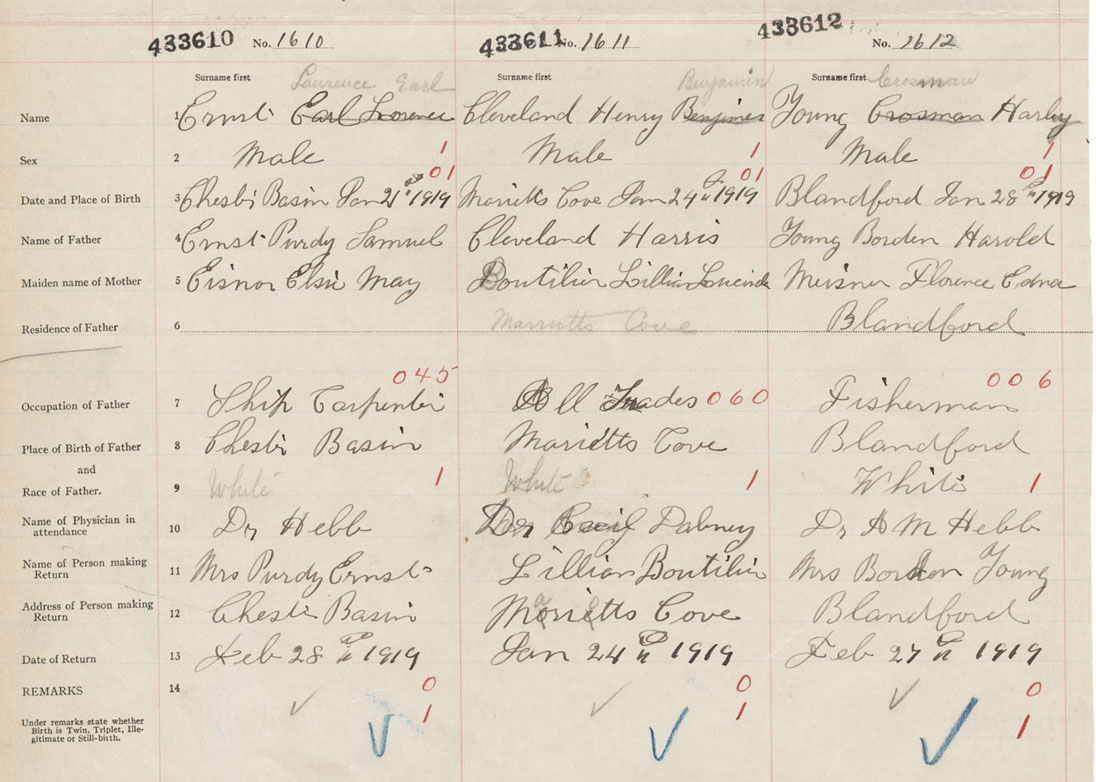 433610 No. 1610 433611 No. 1611 433612 No. 1612
Surname first Laurence Earl Surname first Benjamin Surname first Crosman
Name 1 Ernst Earl Lorence Cleveland Henry Benjimen Young Crosman Harley
Sex 2 Male 1 Male 1 Male 1
01 01 01
Date and Place of Birth 3 Chester Basin Jan 21 1919 Marietts Cove Jan 24th 1919 Blandford Jan 28th 1919
Name of Father 4 Ernst Purdy Samuel Cleveland Harris Young Borden Harold
Maiden name of Mother 5 Eisnor Elsie May Boutilier Lillian Lucinda Meisner Florence Edna
Residence of Father 6 Marriotts Cove Blandford
045 060 006
Occupation of Father 7 Ship Carpenter All Trades Fisherman
Place of Birth of Father 8 Chester Basin Marietts Cove Blandford
and
Race of Father. 9 White 1 White 1 White 1
Name of Physician in attendance 10 Dr Hebb Dr Cecil Dabney Dr A M Hebb
Name of Person making Return 11 Mrs Purdy Ernst Lillian Boutilier Mrs Borden Young
Address of Person making Return 12 Chester Basin Marietts Cove Blandford
Date of Return 13 Feb 28th 1919 Jan 24th 1919 Feb 27th 1919
REMARKS 14 0 0 0
Under remarks state whether 1 1 1
Birth is Twin, Triplet, Ille-
gitimate or Still-birth.